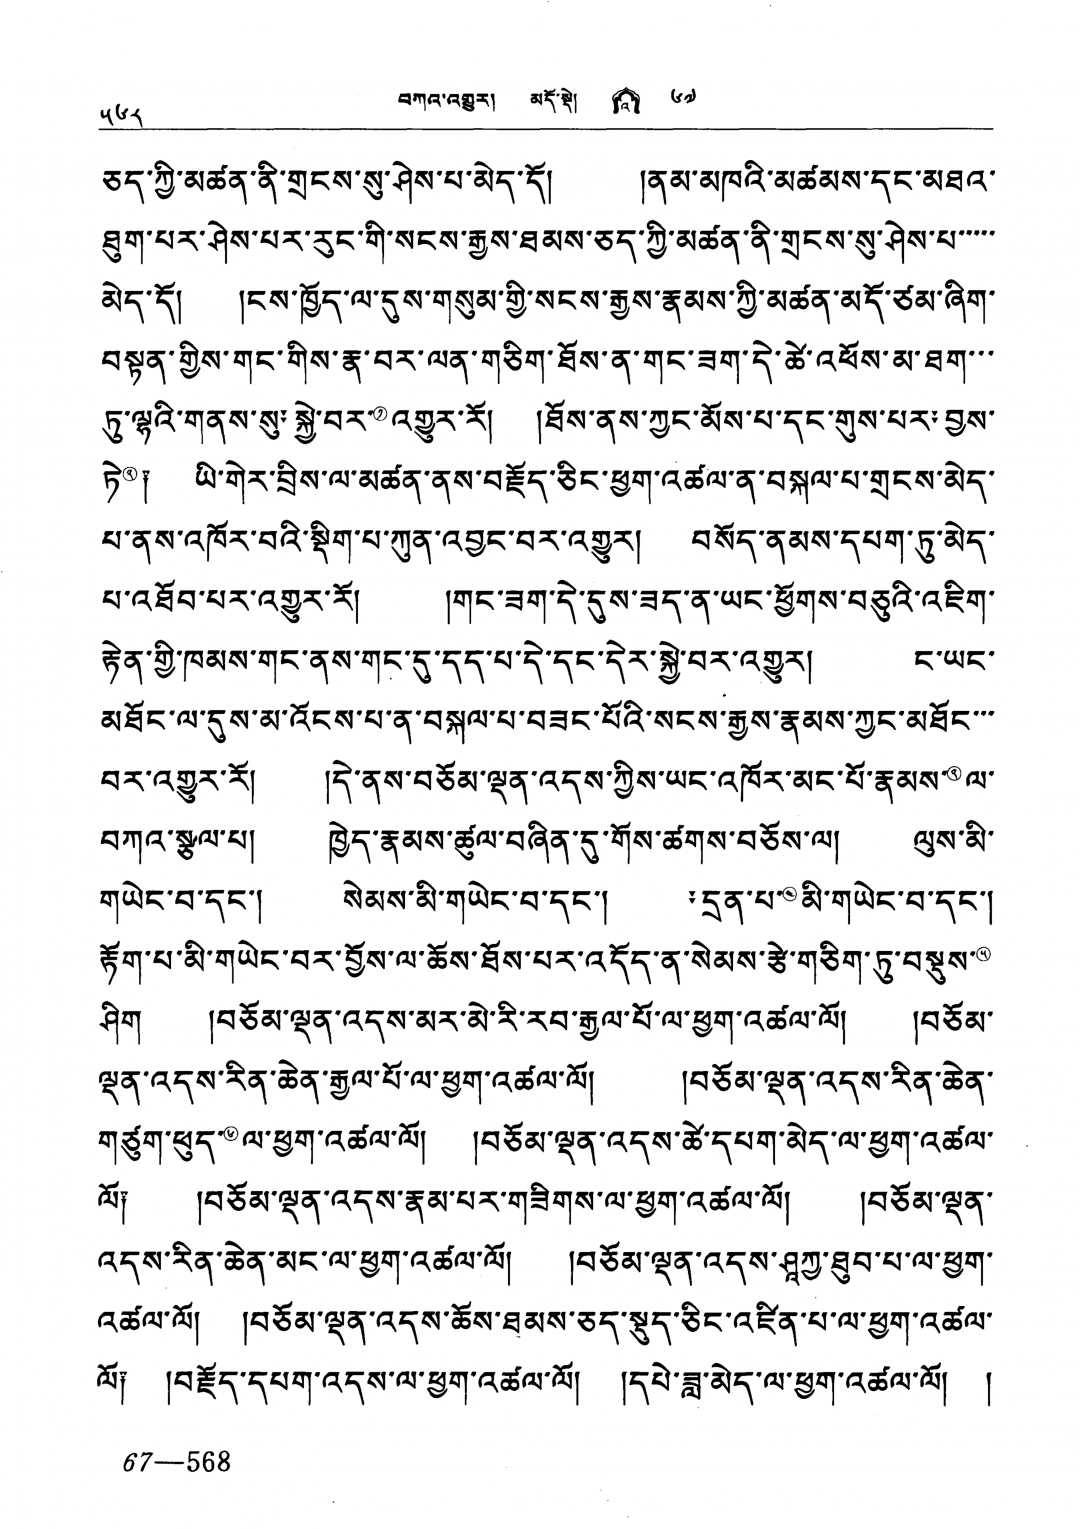 ༥༦༨ བཀའ་འགྱུར། མདོ་སྡེ། འ ༦༧
ཅད་ཀྱི་མཚན་ནི་གྲངས་སུ་ཤེས་པ་མེད་དོ། །ནམ་མཁའི་མཚམས་དང་མཐའ་
ཐུག་པར་ཤེས་པར་རུང་གི་སངས་རྒྱས་ཐམས་ཅད་ཀྱི་མཚན་ནི་གྲངས་སུ་ཤེས་པ་་་་་་
མེད་དོ། །ངས་ཁྱོད་ལ་དུས་གསུམ་གྱི་སངས་རྒྱས་རྣམས་ཀྱི་མཚན་མདོ་ཙམ་ཞིག་
བསྟན་གྱིས་གང་གིས་རྣ་བར་ལན་གཅིག་ཐོས་ན་གང་ཟག་དེ་ཚེ་འཕོས་མ་ཐག་་་་
ཏུ་ལྷའི་གནས་སུ་༔སྐྱེ་བར་①འགྱུར་རོ། །ཐོས་ནས་ཀྱང་མོས་པ་དང་གུས་པར་༔བྱས་
ཏེ②༔། ཡི་གེར་བྲིས་ལ་མཚན་ནས་བརྗོད་ཅིང་ཕྱག་འཚལ་ན་བསྐལ་པ་གྲངས་མེད་
པ་ནས་འཁོར་བའི་སྡིག་པ་ཀུན་འབྱང་བར་འགྱུར། བསོད་ནམས་དཔག་ཏུ་མེད་
པ་འཐོབ་པར་འགྱུར་རོ། །གང་ཟག་དེ་དུས་ཟད་ན་ཡང་ཕྱོགས་བཅུའི་འཇིག་
རྟེན་གྱི་ཁམས་གང་ནས་གང་དུ་དད་པ་དེ་དང་དེར་སྐྱེ་བར་འགྱུར། ང་ཡང་
མཐོང་ལ་དུས་མ་འོངས་པ་ན་བསྐལ་པ་བཟང་པོའི་སངས་རྒྱས་རྣམས་ཀྱང་མཐོང་་་་
བར་འགྱུར་རོ། །དེ་ནས་བཅོམ་ལྡན་འདས་ཀྱིས་ཡང་འཁོར་མང་པོ་རྣམས་③ལ་
བཀའ་སྩལ་པ། ཁྱེད་རྣམས་ཚུལ་བཞིན་དུ་གོས་ཚགས་བཅོས་ལ། ལུས་མི་
གཡེང་བ་དང་། སེམས་མི་གཡེང་བ་དང་། ༔དྲན་པ་④མི་གཡེང་བ་དང་།
རྟོག་པ་མི་གཡེང་བར་བྱོས་ལ་ཆོས་ཐོས་པར་འདོད་ན་སེམས་རྩེ་གཅིག་ཏུ་བསྡུས་⑤
ཤིག །བཅོམ་ལྡན་འདས་མར་མེ་རི་རབ་རྒྱལ་པོ་ལ་ཕྱག་འཚལ་ལོ། །བཅོམ་
ལྡན་འདས་རིན་ཆེན་རྒྱལ་པོ་ལ་ཕྱག་འཚལ་ལོ། །བཅོམ་ལྡན་འདས་རིན་ཆེན་
གཙུག་ཕུད་⑥ལ་ཕྱག་འཚལ་ལོ། །བཅོམ་ལྡན་འདས་ཚེ་དཔག་མེད་ལ་ཕྱག་འཚལ་
ལོ༔། །བཅོམ་ལྡན་འདས་རྣམ་པར་གཟིགས་ལ་ཕྱག་འཚལ་ལོ། །བཅོམ་ལྡན་
འདས་རིན་ཆེན་མང་ལ་ཕྱག་འཚལ་ལོ། །བཅོམ་ལྡན་འདས་ཤཱཀྱ་ཐུབ་པ་ལ་ཕྱག་
འཚལ་ལོ། །བཅོམ་ལྡན་འདས་ཆོས་ཐམས་ཅད་སྡུད་ཅིང་འཛིན་པ་ལ་ཕྱག་འཚལ་
ལོ༔། །བརྗོད་དཔག་འདས་ལ་ཕྱག་འཚལ་ལོ། །དཔེ་ཟླ་མེད་ལ་ཕྱག་འཚལ་ལོ། །
67—568